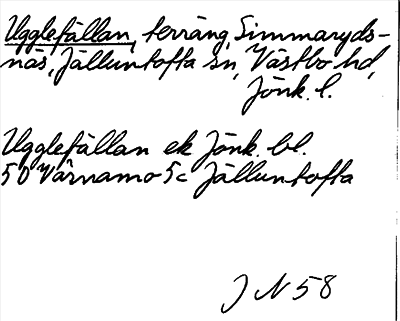 Ugglefällan, terräng, Simmaryds-
näs, Jälluntofta sn, Västbo hd,
Jönk. l.
Ugglefällan ek Jönk. bl.
50 Värnamo 5c Jälluntofta
J N 58